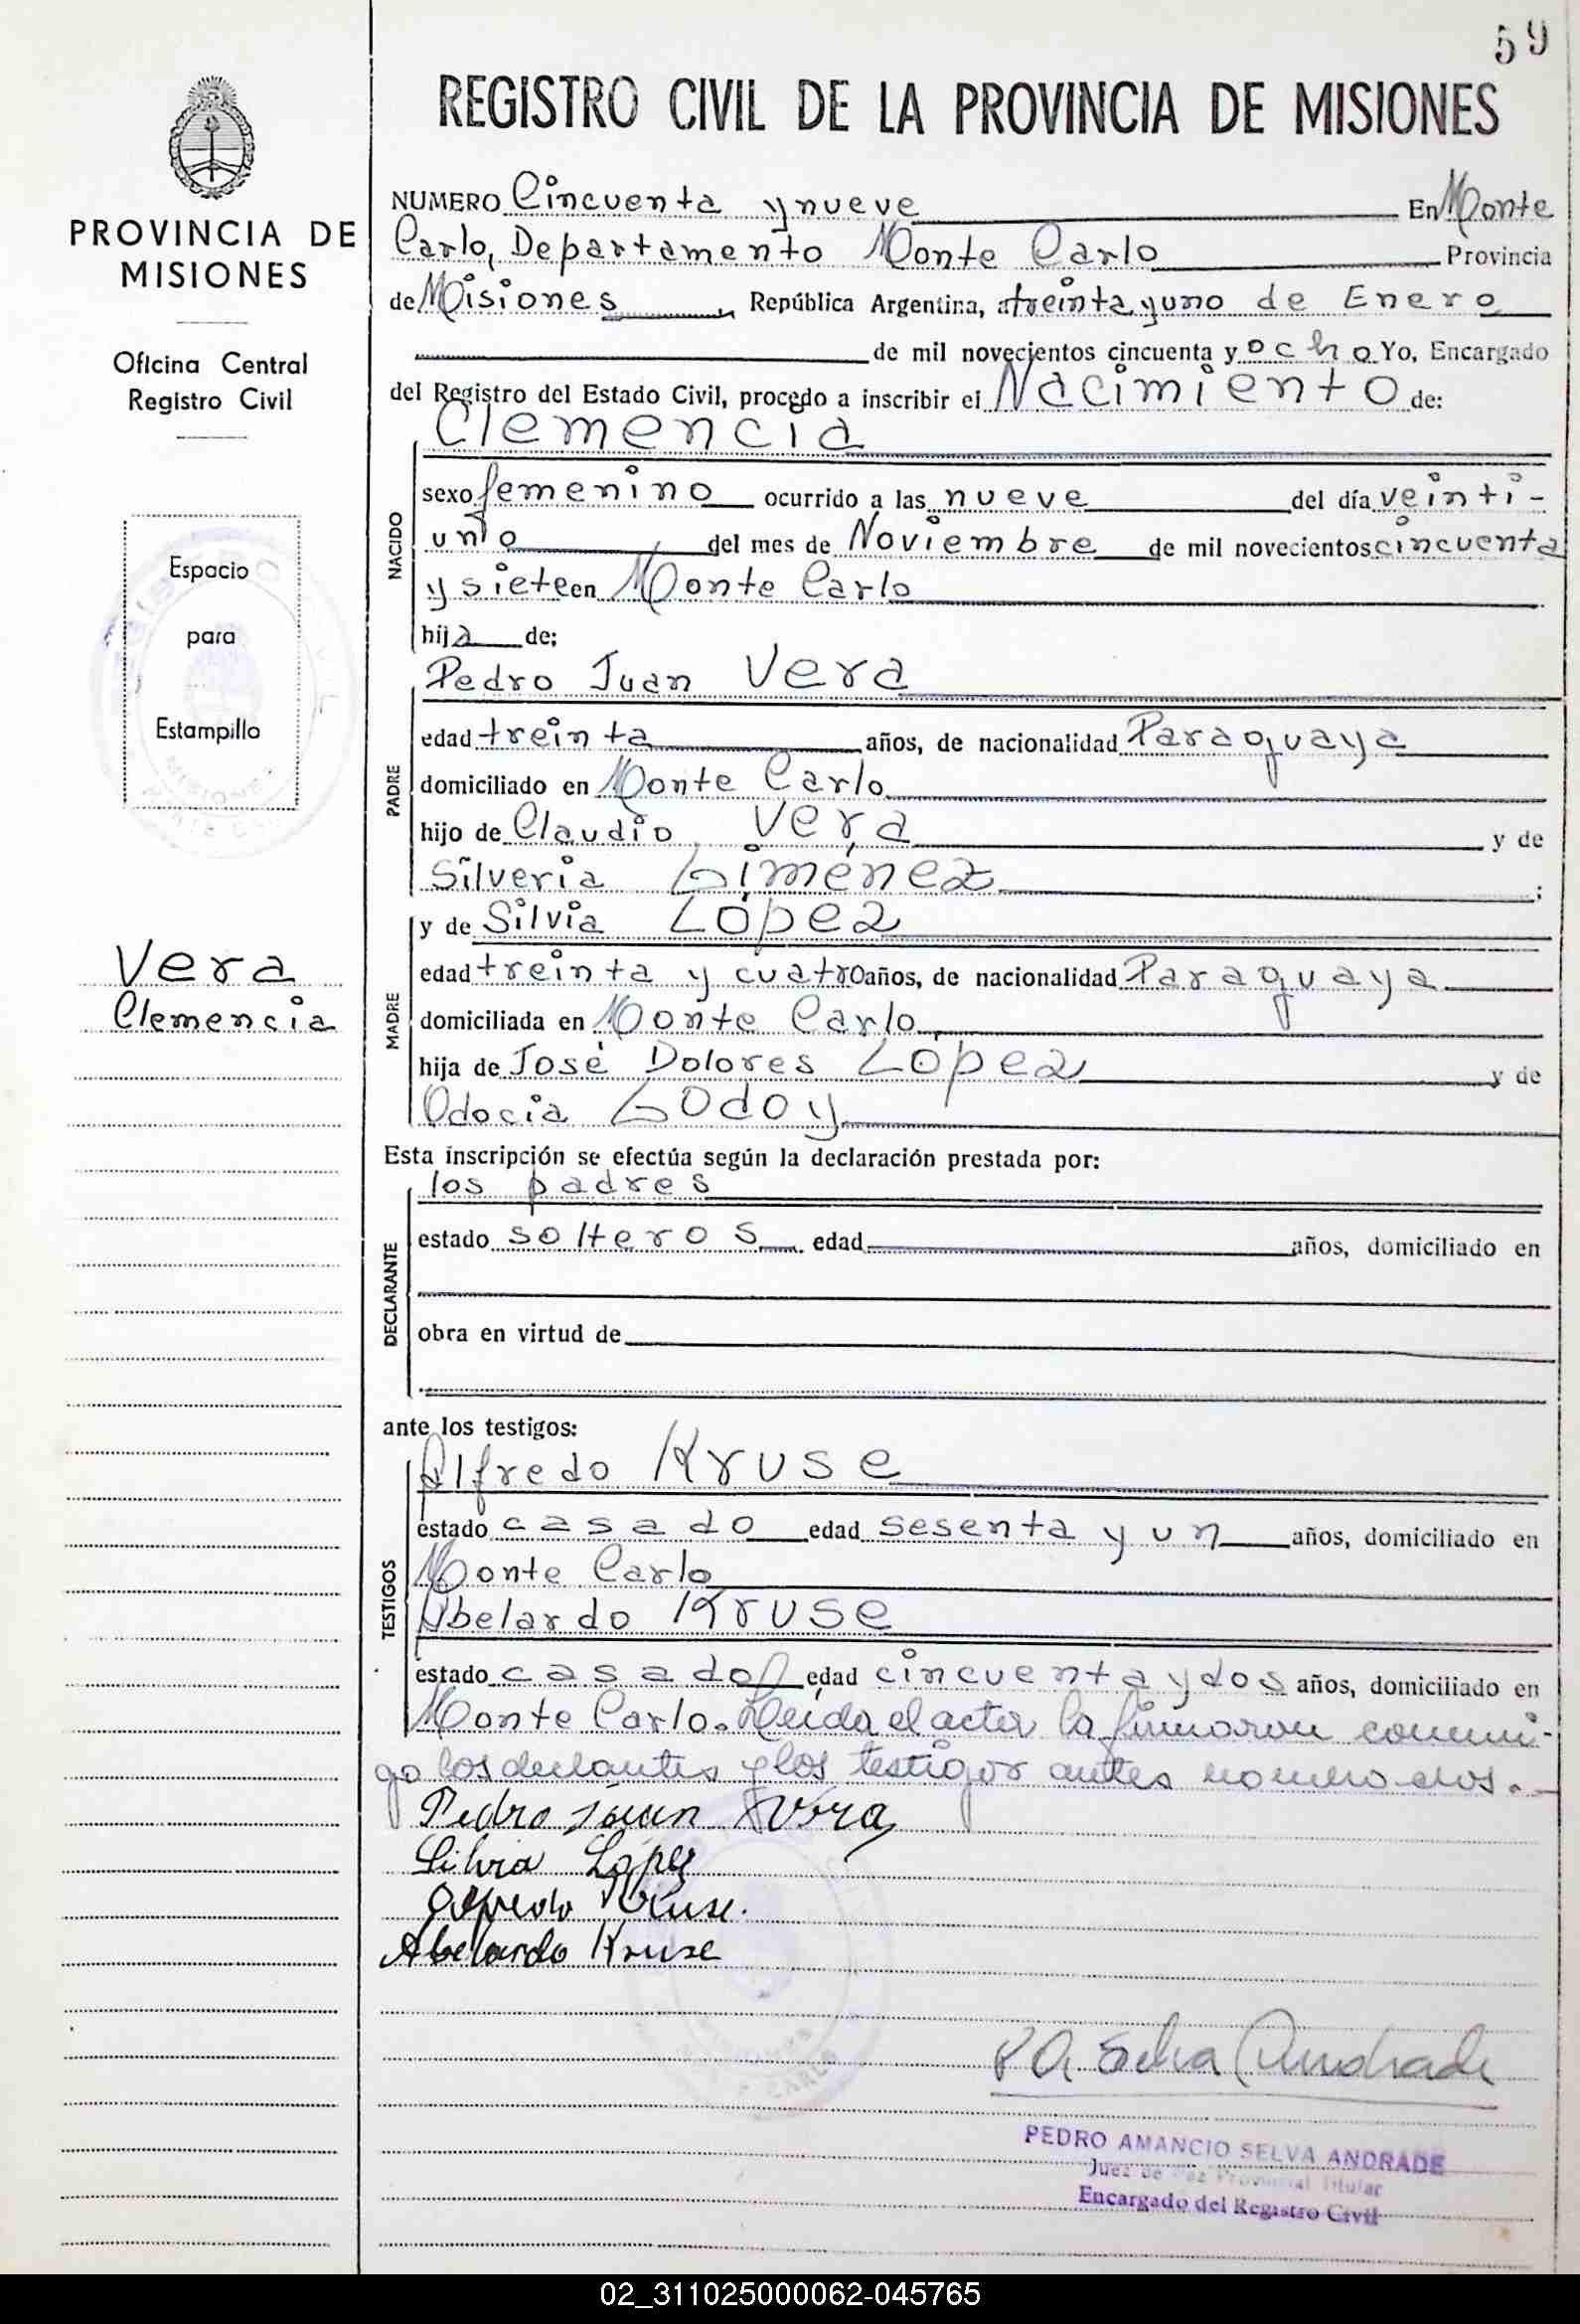 59
REGISTRO CIVIL DE LA PROVINCIA DE MISIONES
PROVINCIA DE
MISIONES
Oficina Central
Registro Civil
Espacio
para
Estampilla
Vera
Clemencia
NUMERO Cincuenta y nueve En Monte
Carlo, Departamento Monte Carlo Provincia
de Misiones, República Argentina, a treinta y uno de Enero
de mil novecientos cincuenta y ocho Yo, Encargado
del Registro del Estado Civil, procedo a inscribir el Nacimiento de:
NACIDO
Clemencia
sexo femenino ocurrido a las nueve del día veinti-
uno del mes de Noviembre de mil novecientos cincuenta
y siete en Monte Carlo
hija de:
PADRE
Pedro Juan Vera
edad treinta años, de nacionalidad Paraguaya
domiciliado en Monte Carlo
hijo de Claudio Vera y de
Silveria Giménez;
MADRE
y de Silvia López
edad treinta y cuatro años, de nacionalidad Paraguaya
domiciliada en Monte Carlo
hija de José Dolores López y de
Odocia Godoy
Esta inscripción se efectúa según la declaración prestada por:
DECLARANTE
los padres
estado solteros edad años, domiciliado en
obra en virtud de
ante los testigos:
TESTIGOS
Alfredo Kruse
estado casado edad sesenta y un años, domiciliado en
Monte Carlo
Abelardo Kruse
estado casado edad cincuenta y dos años, domiciliado en
Monte Carlo. Leída el acta la firmaron conmi-
go los declantes y los testigos antes nombrados.
Pedro Juan Vera
Silvia López
Alfredo Kruse.
Abelardo Kruse
P A Selva Andrade
PEDRO AMANCIO SELVA ANDRADE
Juez de Paz Provincial Titular
Encargado del Registro Civil
02_311025000062-045765